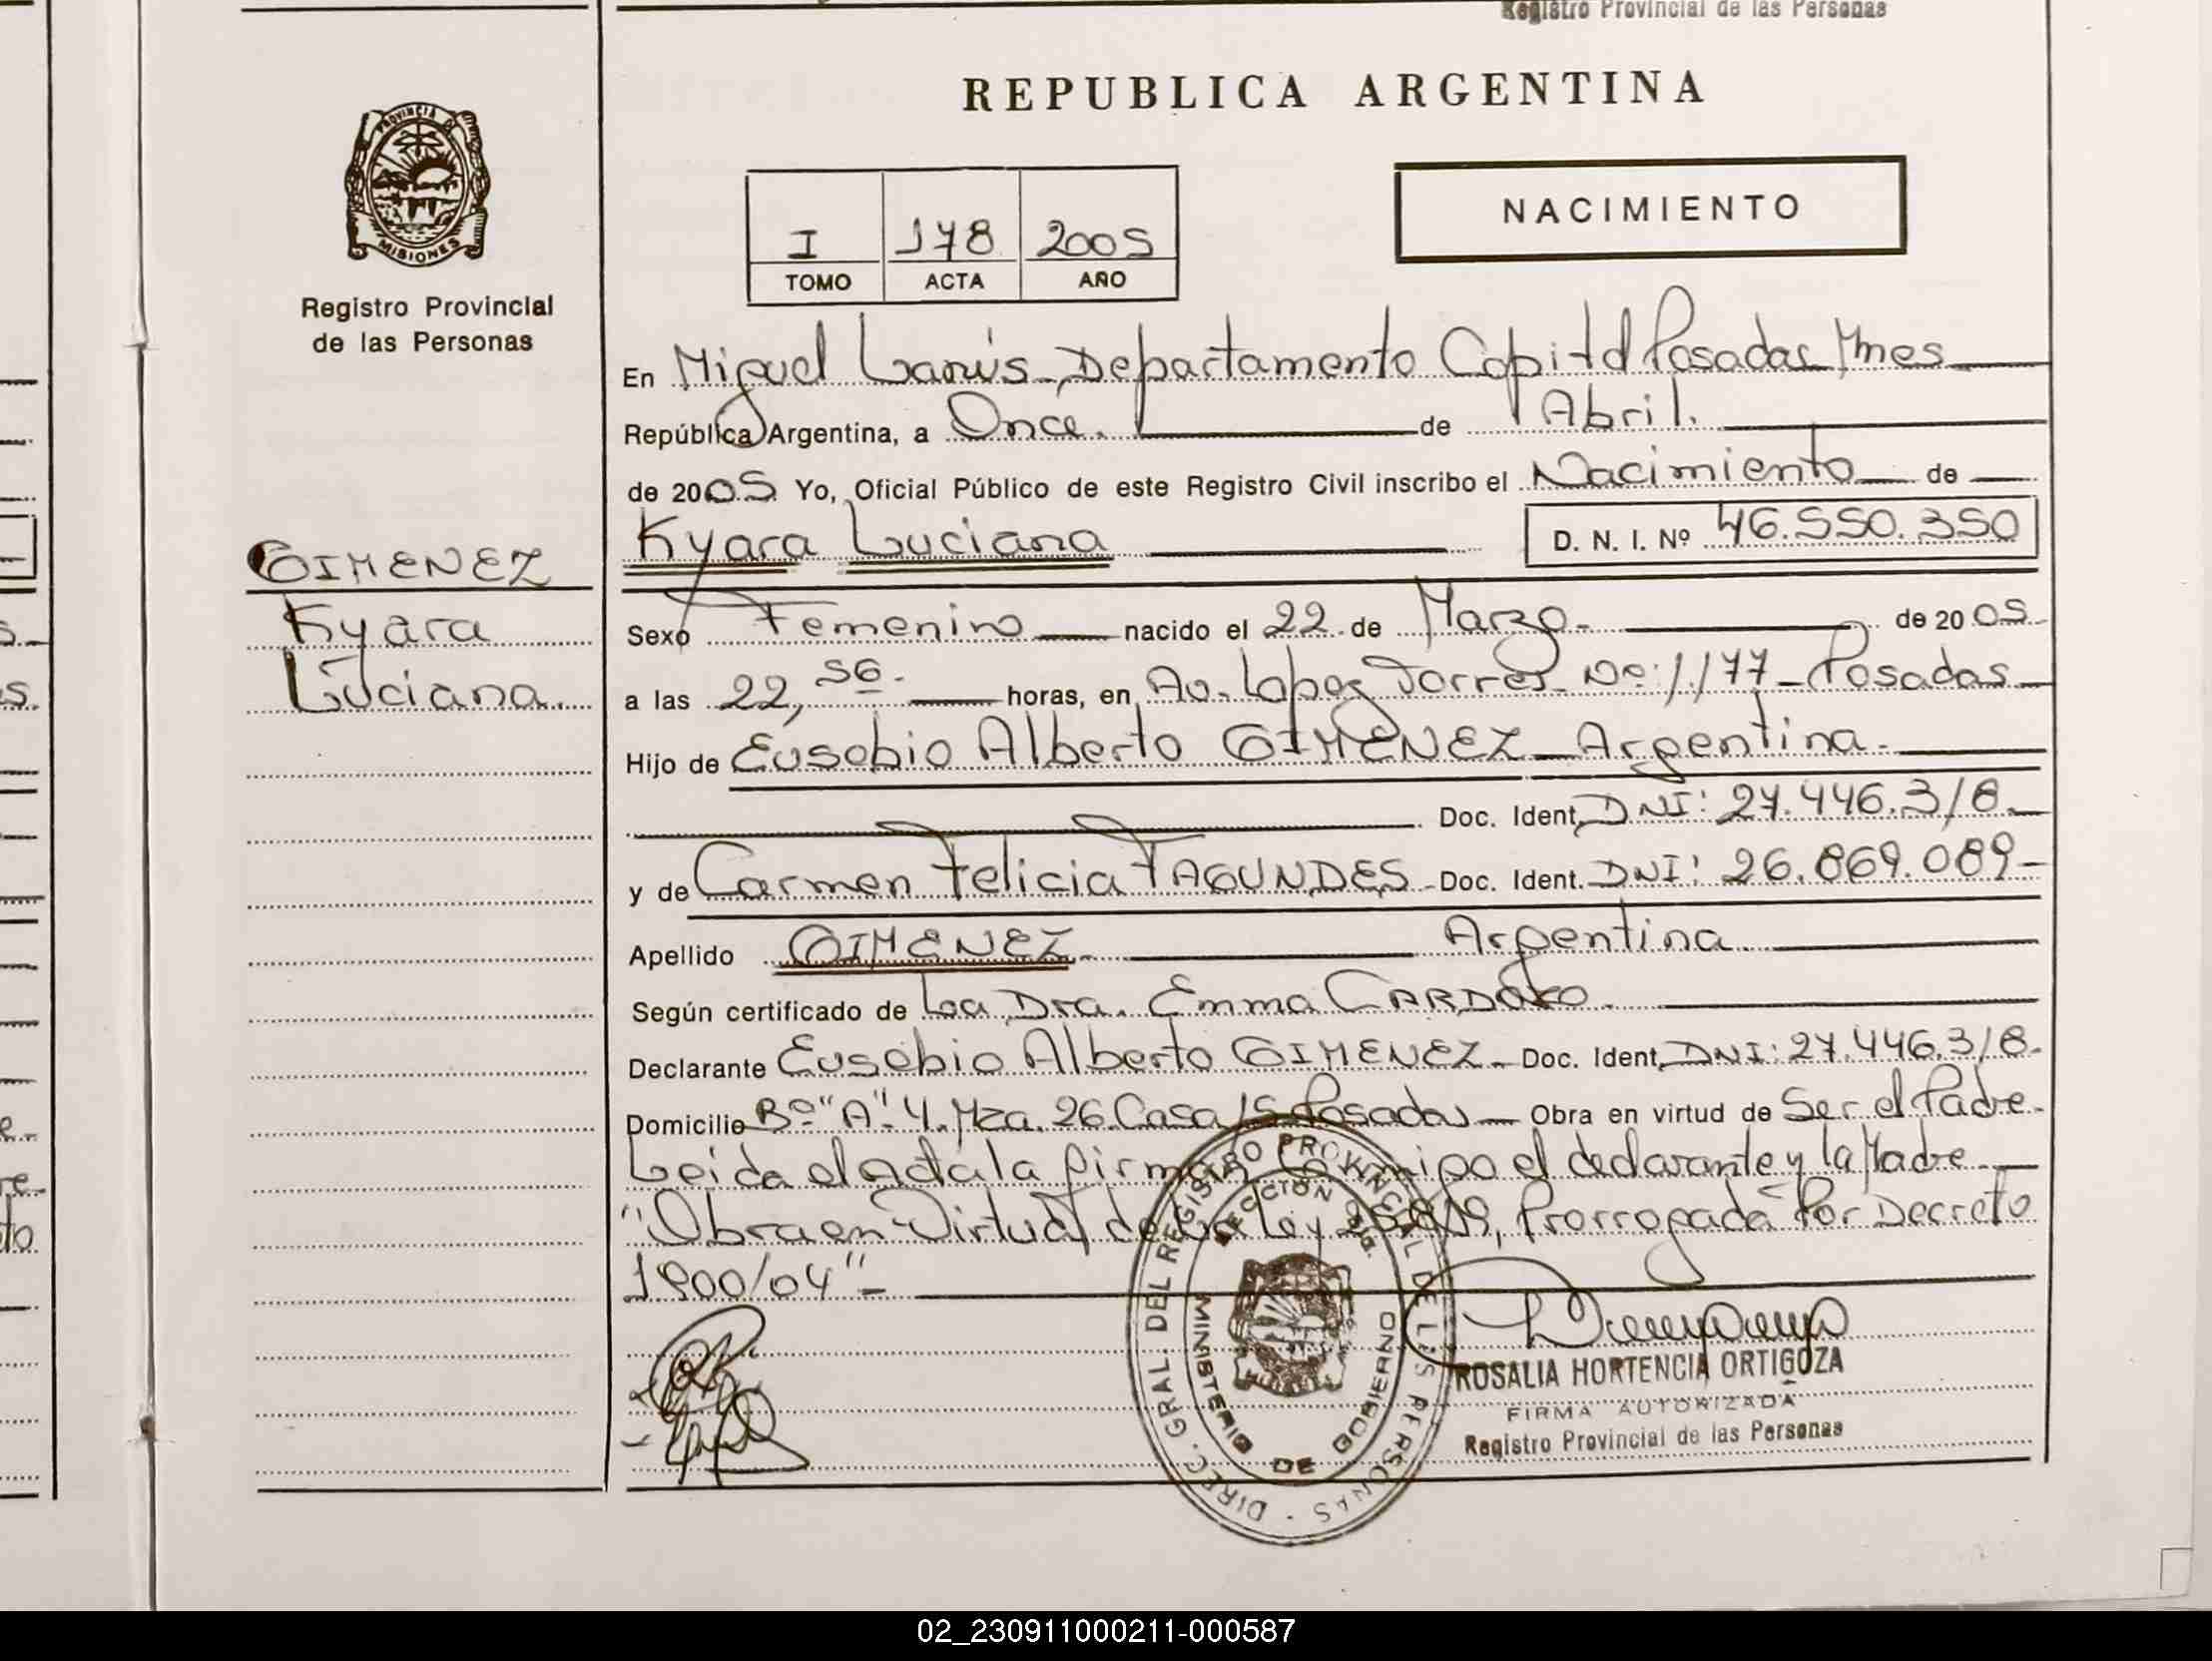 Registro Provincial de las Personas
REPUBLICA ARGENTINA
PROVINCIA DE
MISIONES
Registro Provincial
de las Personas
I 178 2005
TOMO ACTA AÑO
NACIMIENTO
En Miguel Lanús, Departamento Capital Posadas Mnes
República Argentina, a Once. de Abril.
de 2005 Yo, Oficial Público de este Registro Civil inscribo el Nacimiento de
Kyara Luciana D. N. I. Nº 46.550.350
GIMENEZ
Kyara
Luciana
Sexo Femenino nacido el 22 de Marzo de 2005
a las 22,56 horas, en Av. Lopez Torres Nº: 1.177 - Posadas
Hijo de Eusebio Alberto GIMENEZ - Argentina.
Doc. Ident. DNI: 27.446.318.
y de Carmen Felicia FAGUNDES - Doc. Ident. DNI: 26.869.089-
Apellido GIMENEZ Argentina
Según certificado de La Dra. Emma CARDOZO.
Declarante Eusebio Alberto GIMENEZ - Doc. Ident. DNI: 27.446.318.
Domicilio Bº "A" 4. Mza. 26. Casa 15 Posadas - Obra en virtud de Ser el Padre.
Leida el Acta la firman Conmigo el declarante y la Madre
"Obra en Virtud de La Ley 25.819, Prorrogada Por Decreto
1900/04"-
DIREC. GRAL. DEL REGISTRO PROVINCIAL DE LAS PERSONAS
MINISTERIO DE GOBIERNO
ROSALIA HORTENCIA ORTIGOZA
FIRMA AUTORIZADA
Registro Provincial de las Personas
02_230911000211-000587